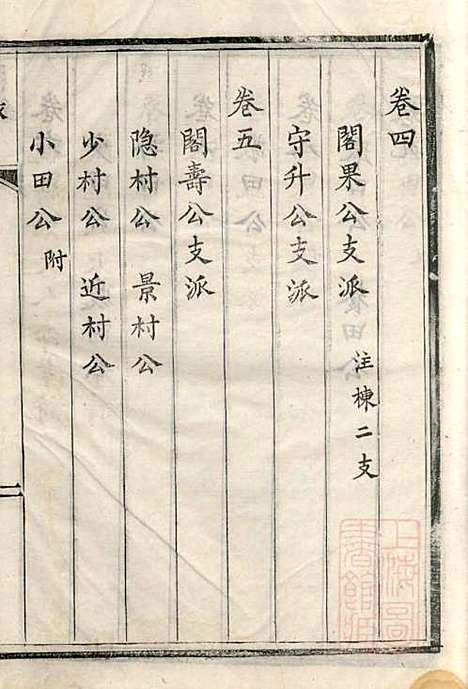 卷四
閣果公支派 注棟二支
守升公支派
卷五
閣壽公支派
隐村公 景村公
少村公 近村公
小田公 附
二
上海圖書館藏